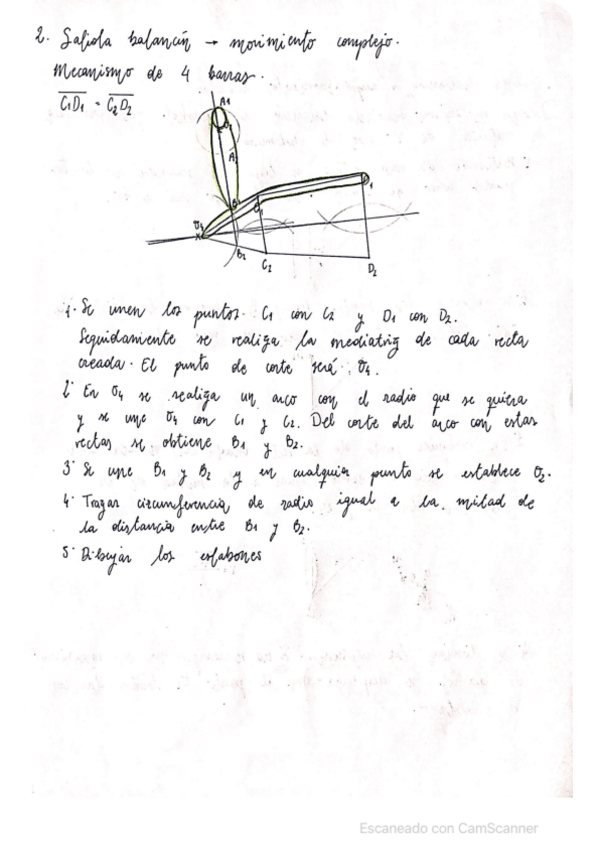 2. Salida balancín → movimiento complejo.
Mecanismo de 4 barras.
C1D1 = C2D2
A1
O2
A2
B1
C1
D1
O4
B2
C2
D2
1· Se unen los puntos C1 con C2 y D1 con D2.
Seguidamente se realiza la mediatriz de cada recta
creada. El punto de corte será O4.
2· En O4 se realiza un arco con el radio que se quiera
y se une O4 con C1 y C2. Del corte del arco con estas
rectas se obtiene B1 y B2.
3· Se une B1 y B2 y en cualquier punto se establece O2.
4· Trazar circunferencia de radio igual a la mitad de
la distancia entre B1 y B2.
5· Dibujar los eslabones
Escaneado con CamScanner